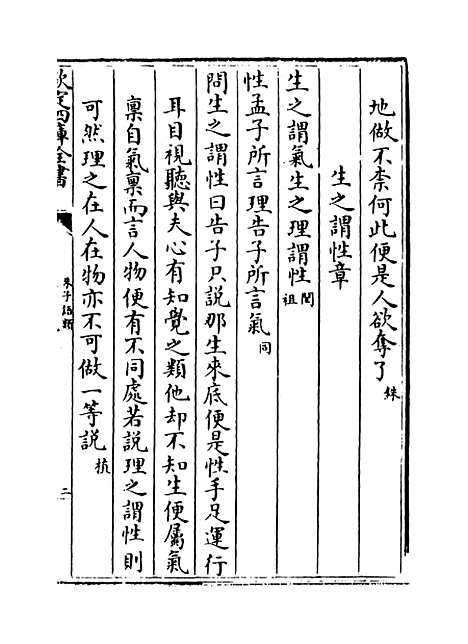 地做不柰何此便是人欲奪了銖
生之謂性章
生之謂氣生之理謂性閎祖
性孟子所言理告子所言氣同
問生之謂性曰告子只說那生來底便是性手足運行
耳目視聽與夫心有知覺之類他却不知生便屬氣
禀自氣禀而言人物便有不同處若說理之謂性則
可然理之在人在物亦不可做一等說㭿
欽定四庫全書
朱子語類
二